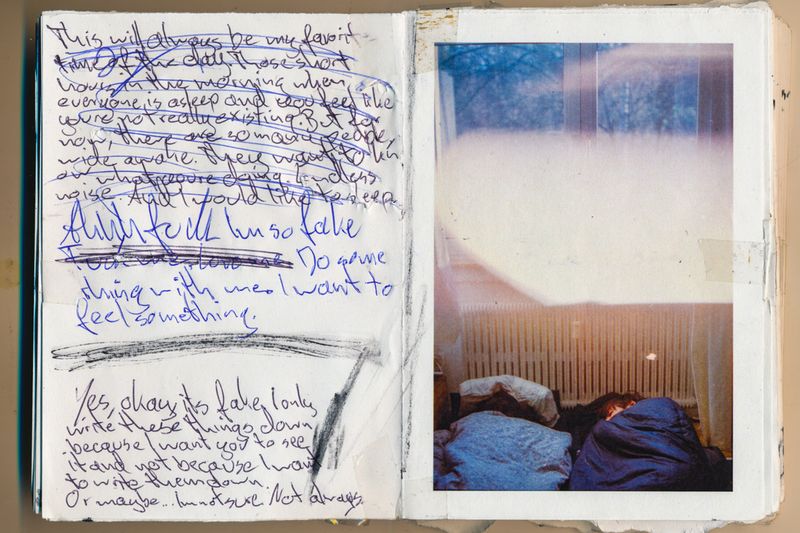 This will always be my favorit
time of the day. Those short
hours in the morning when
everyone is asleep and you feel like
you're not really existing. But for
now, there are so many people,
wide awake. They want to kn
ow what you're doing. Endless
noise. And I would like to sleep.
fuck Im so fake
Do some
thing with me. I want to
feel something.
Yes, okay, its fake. I only
write these things down
because I want you to see
it and not because I want
to write them down.
Or maybe... Im not sure. Not always.